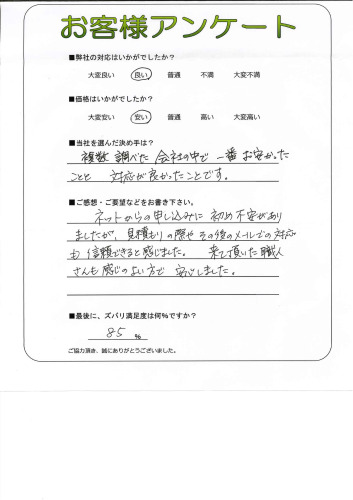 お客様アンケート
■弊社の対応はいかがでしたか?
大変良い 良い 普通 不満 大変不満
■価格はいかがでしたか?
大変安い 安い 普通 高い 大変高い
■当社を選んだ決め手は?
複数調べた会社の中で一番お安かった
ことと 対応が良かったことです。
■ご感想・ご要望などをお書き下さい。
ネットからの申し込みに初め不安があり
ましたが、見積もりの際やその後のメールでの対応
も信頼できると感じました。 来て頂いた職人
さんも感じのよい方で安心しました。
■最後に、ズバリ満足度は何%ですか?
85 %
ご協力頂き、誠にありがとうございました。